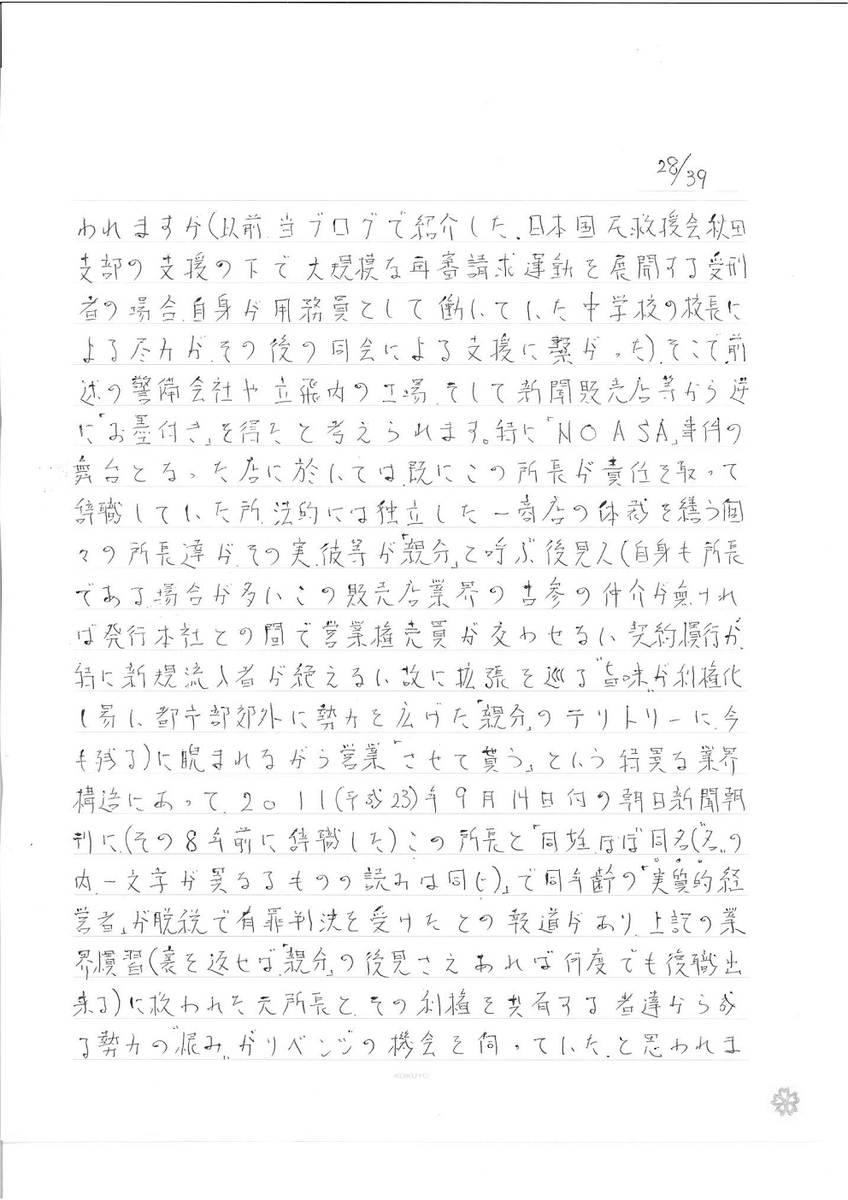 28/39
われますが(以前、当ブログで紹介した、日本国民救援会秋田
支部の支援の下で大規模な再審請求運動を展開する受刑
者の場合、自身が用務員として働いていた中学校の校長に
よる尽力が、その後の同会による支援に繋がった)、そこで、前
述の警備会社や立飛内の工場、そして新聞販売店等から逆
に「お墨付き」を得たと考えられます。特に「NOASA」事件の
舞台となった店に於いては、既にこの所長が責任を取って
辞職していた所、法的には独立した一商店の体裁を繕う個
々の所長達が、その実、彼等が「親分」と呼ぶ後見人(自身も所長
である場合が多いこの販売店業界の古参の仲介が無けれ
ば発行本社との間で営業権売買が交わせない契約慣行が、
特に新規流入者が絶えない故に拡張を巡る"旨味"が利権化
し易い都市部郊外に勢力を広げた「親分」のテリトリーに、今
も残る)に睨まれながら営業「させて貰う」という特異な業界
構造にあって、2011(平成23)年9月14日付の朝日新聞朝
刊に、(その8年前に辞職した)この所長と「同姓、ほぼ同名("名"の
内、一文字が異なるものの読みは同じ)」で同年齢の「実質的経
営者」が脱税で有罪判決を受けたとの報道があり、上記の業
界慣習(裏を返せば、「親分」の後見さえあれば何度でも復職出
来る)に救われた元所長と、その利権を共有する者達から成
る勢力の"恨み"がリベンジの機会を伺っていた、と思われま
KOKUYO